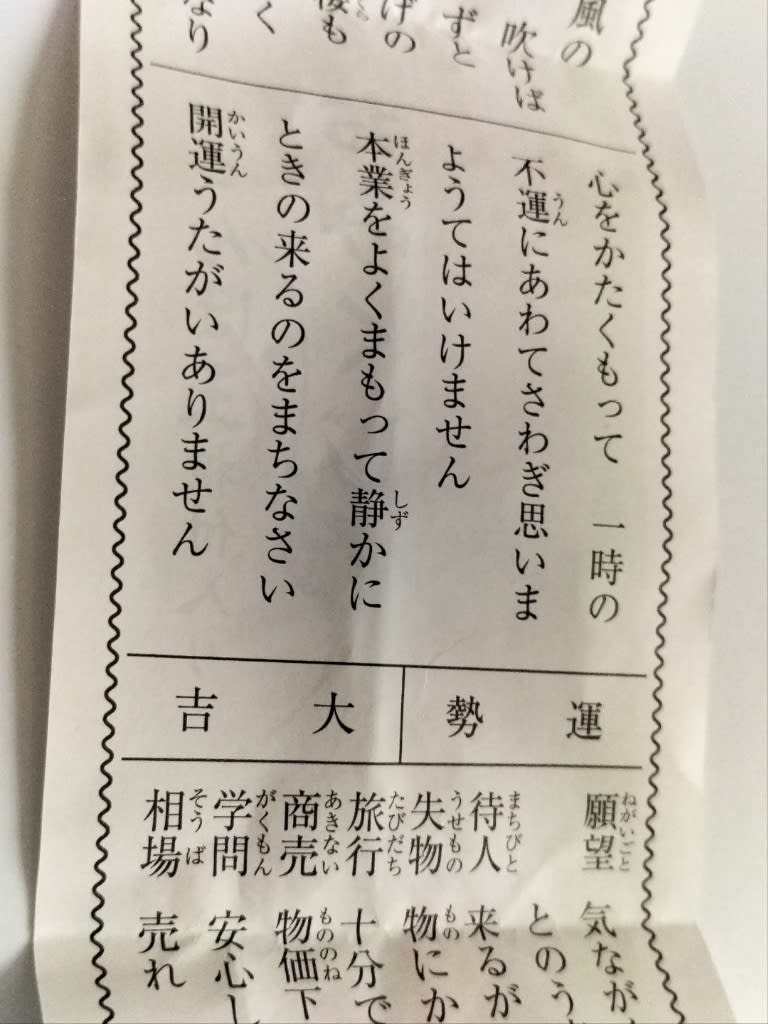 風の
吹けば
ずと
げの
も
く
なり
心をかたくもって 一時の
不運にあわてさわぎ思いま
ようてはいけません
本業をよくまもって静かに
ときの来るのをまちなさい
開運うたがいありません
運勢 大吉
願望 気なが
とのう
待人 来るが
失物 物にか
旅行 十分で
商売 物価下
学問 安心し
相場 売れ